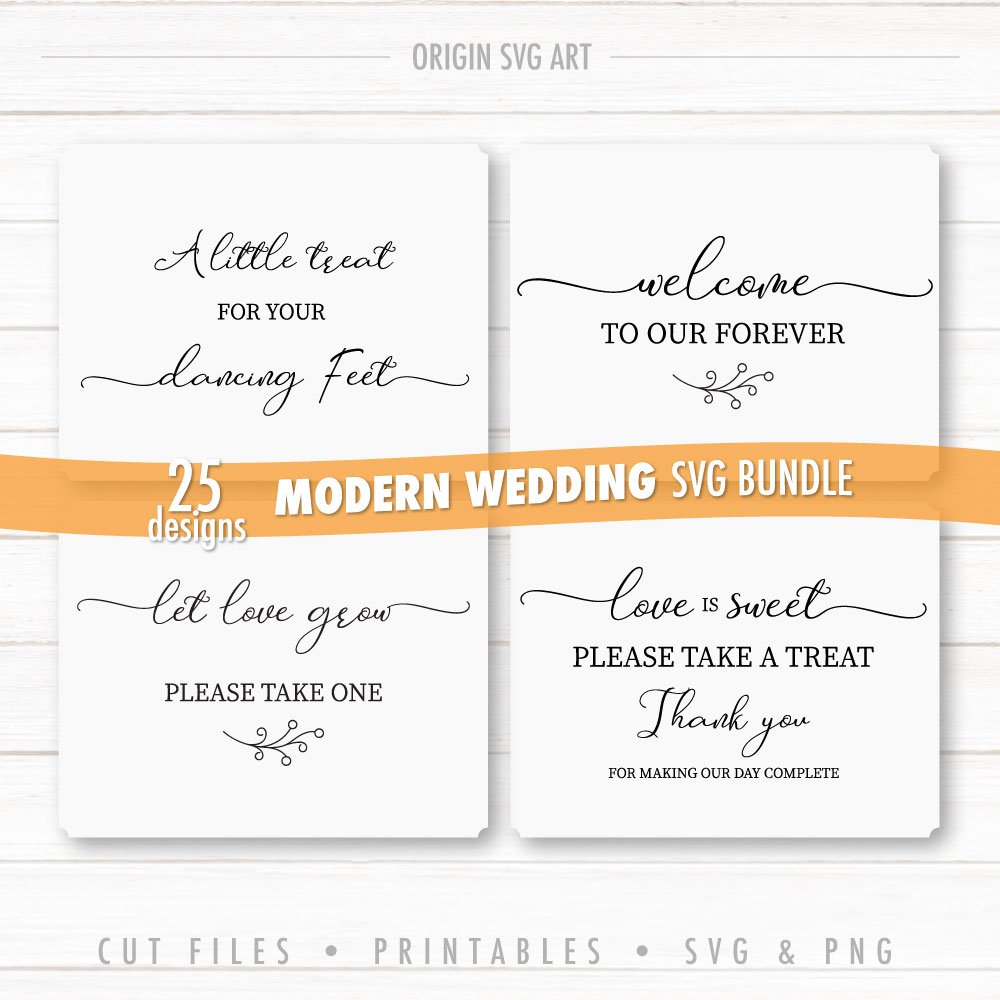 ORIGIN SVG ART
A little treat
FOR YOUR
dancing Feet
welcome
TO OUR FOREVER
25
designs
MODERN WEDDING SVG BUNDLE
let love grow
PLEASE TAKE ONE
love IS sweet
PLEASE TAKE A TREAT
Thank you
FOR MAKING OUR DAY COMPLETE
CUT FILES • PRINTABLES • SVG & PNG